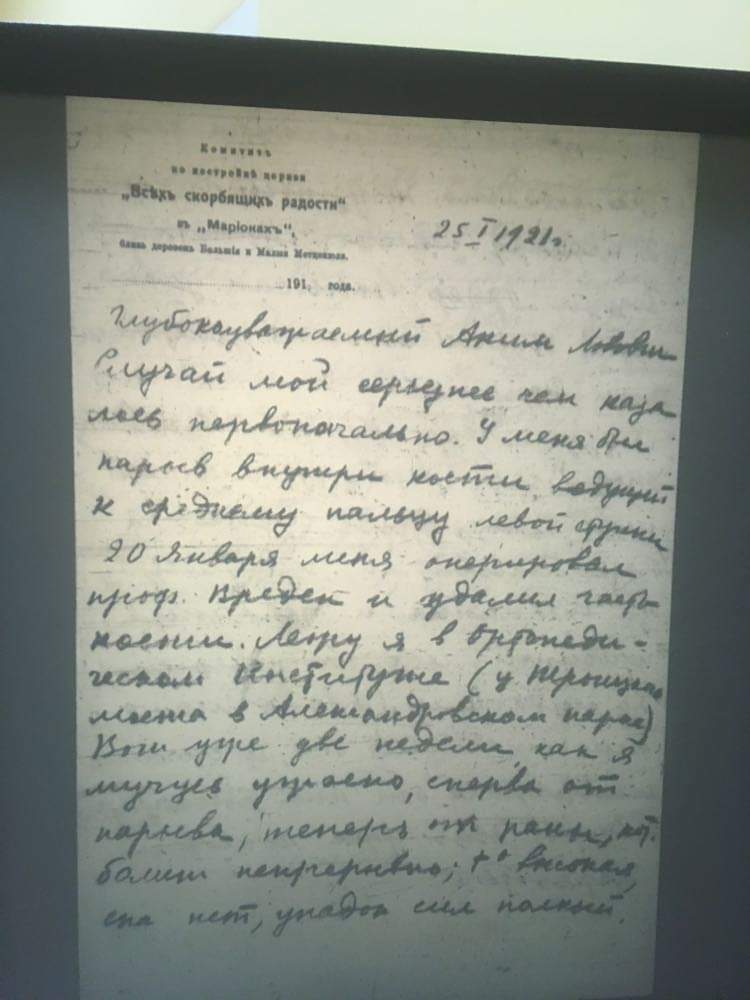 Комитетъ
по постройкѣ церкви
„Всѣхъ скорбящихъ радости“
въ „Маріонахъ“,
близъ деревень Большія и Малыя
191 года.
25 I 1921 г.
Глубокоуважаемый Аким Львович
Случай мой серьезнее чем каза
лось первоначально. У меня был
нарыв внутри кости ведущей
к среднему пальцу левой
20 Января меня оперировал
проф. Вреден и удалил часть
кости. Лежу я в Ортопеди-
ческом Институте (у Троицкого
моста в Александровском парке)
Вот уже две недели, как я
мучусь ужасно, сперва от
нарыва, теперь от раны, кот.
болит непрерывно; t° высокая,
сна нет, упадок сил полный.